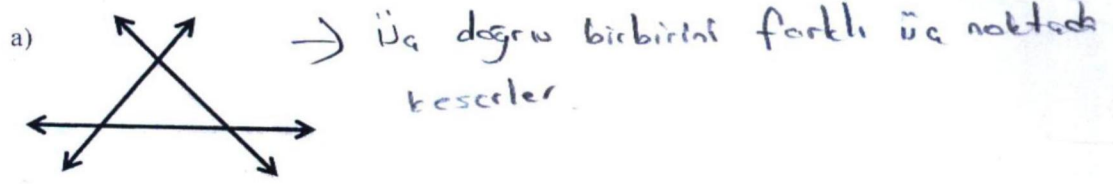 a) → Üç doğru birbirini farklı üç noktada
keserler.